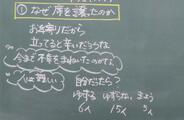 ① なぜ席を譲ったのか
お年寄りだから
立ってると辛いだろうな
今まで席をまよわなかったのか?
心は難しい
自分だったら?
ゆずる ゆずらない まよう
6人 15人 5人